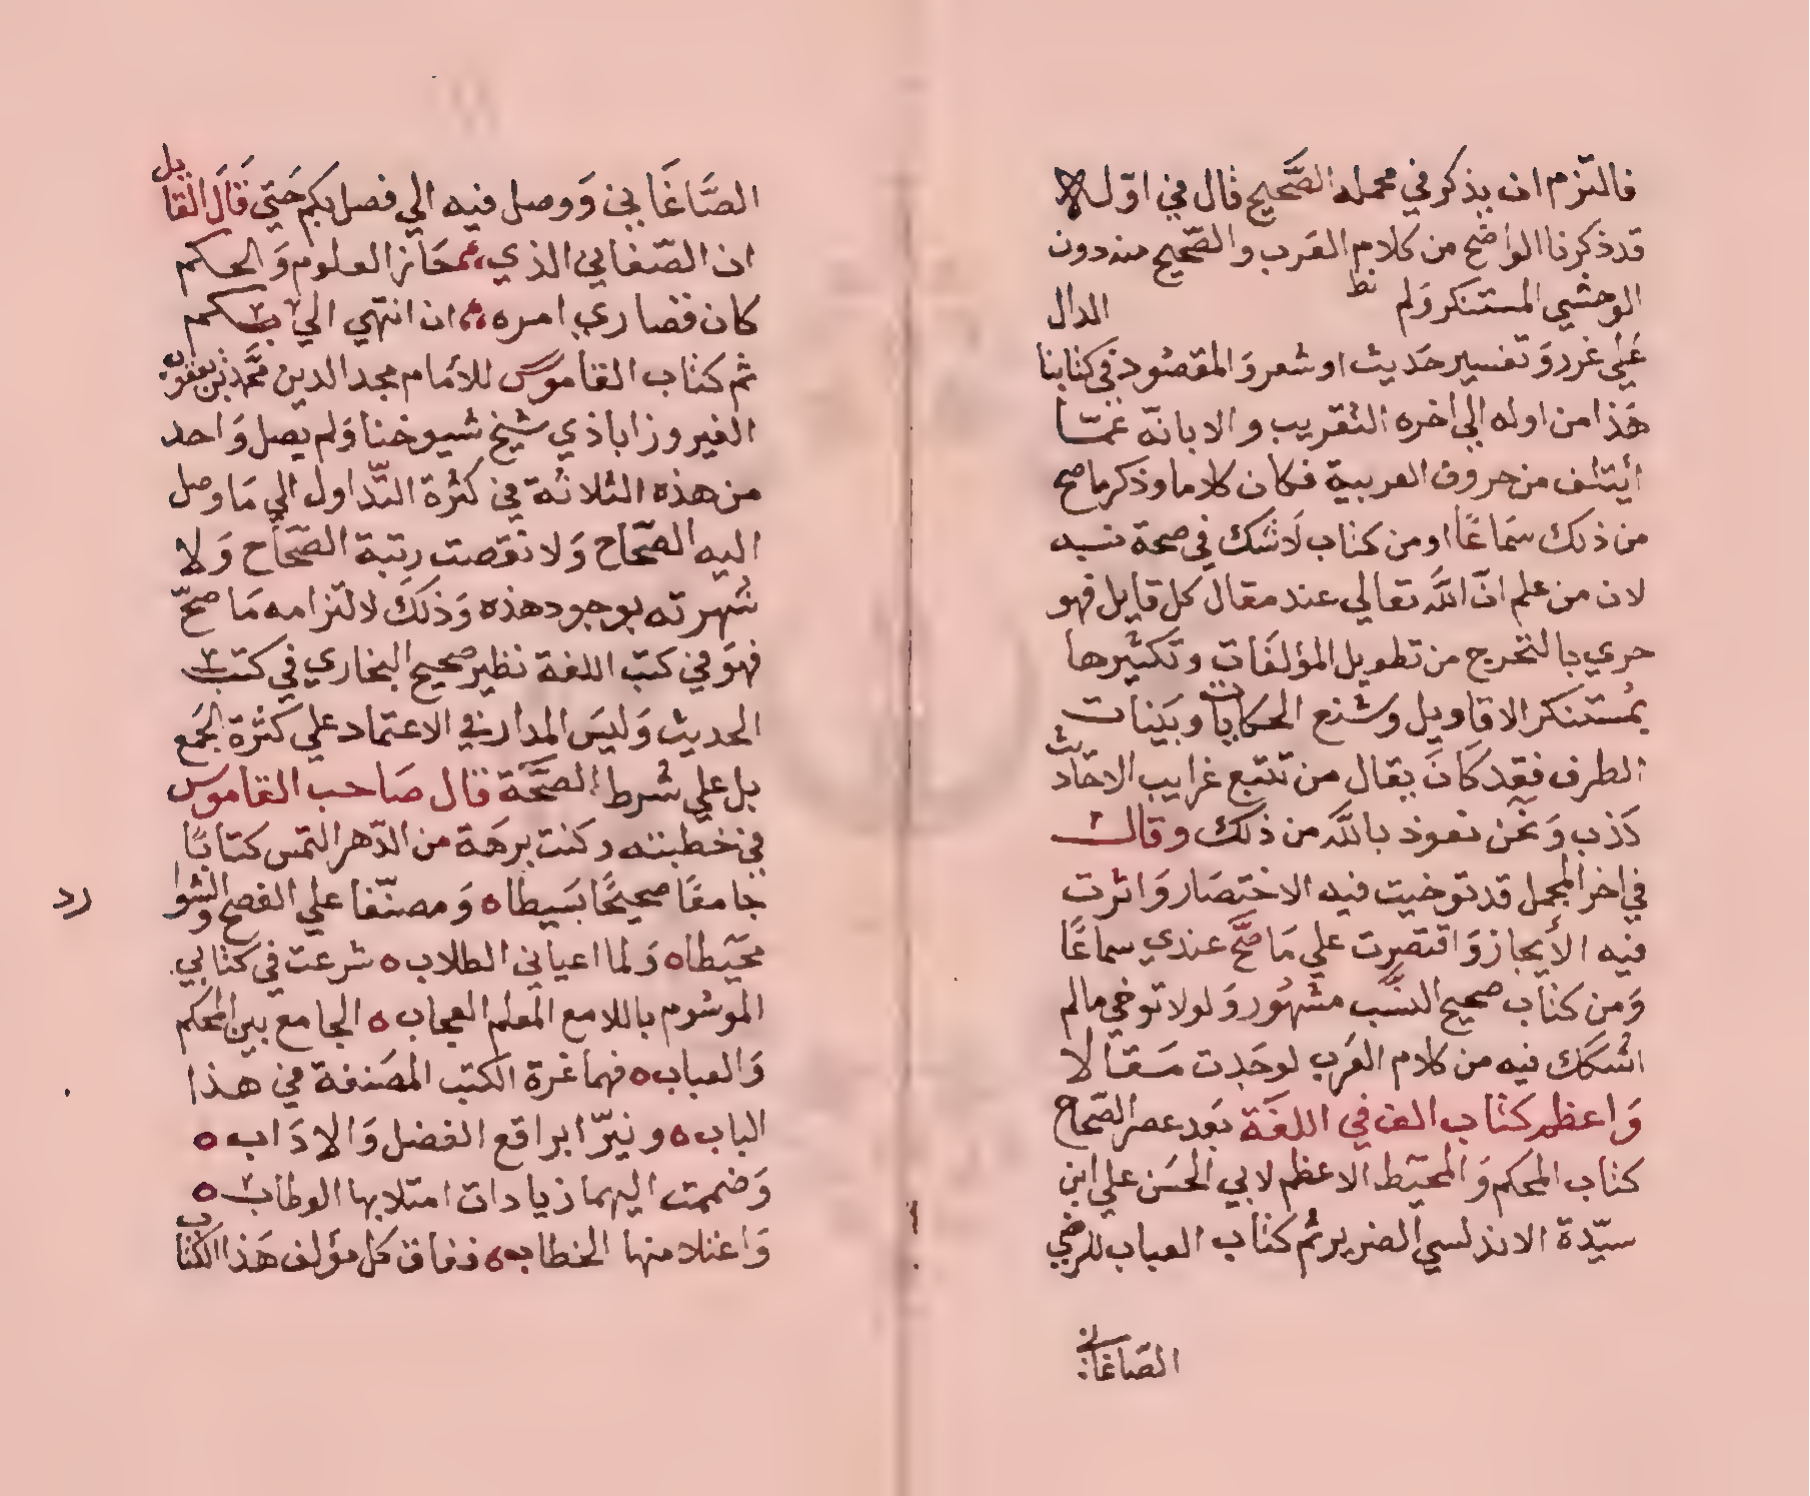 فالتزم ان يذكر في مجمله الصَّحيح قال في اوّله
قد ذكرنا الواضح من كلام العَرب والصّحيح منه دون
الوحشي المستنكر وَلم نط الدال
عَلي غرر وَتفسير حَديث او شعر وَالمقصُود في كتابنا
هَذا من اوله الي اخره التقريب والابانة عمّا
أيتلف من حروف العربية فكان كلاما وذكر ما صح
من ذلك سمَاعًا او من كتاب لَا شك في صحة نسبه
لان من علم انّ اللّه تعالي عند مقال كل قايل فهو
حري بالتحرج من تطويل المؤلفَات وتكثيرها
بمُستنكر الاقاويل وشنع الحكايات وبَينات
الطرف فقد كَانَ يقال من تتبع غرايب الاحَاديث
كذب وَنحَن نعوذ باللّه من ذلك وقال
في اخر المجمل قد توخيت فيه الاختصَار وَاثرت
فيه الأيجاز وَاقتصرت علي مَا صَحَّ عندي سماعًا
وَمن كتاب صحيح النسَّب مشهُور وَلولا توخي ما لم
اشكك فيه من كلام العَرب لوجَدت مَقالا
وَاعظم كتاب الف في اللغَة بَعد عصر الصّحاح
كتاب المحكم وَالمحيَط الاعظم لابي الحسَن علي ابن
سيّدة الاندلسي الضرير ثم كتاب العباب للرضي
الصّاغاني
الصَّاغَاني وَوصل فيه الي فصل بكم حَتي قَالَ القايل
ان الصّغاني الذي حَاز العلوم وَالحكم
كان قصاري امره ان انتهي الي بكم
ثم كتاب القاموس للأمام مجد الدين محَّد بن يعقوب
الفيروزاباذي شيخ شيوخنا وَلم يصل وَاحد
من هذه الثلاثة في كثرة التّداول الي مَا وصل
اليه الصّحَاح وَلا نقصت رتبة الصّحَاح وَلا
شهرته بوجود هذه وَذلكَ لالتزامه مَا صحّ
فهوَ في كتب اللغة نظير صحيح البخاري في كتب
الحديث وَليسَ المدار في الاعتماد علي كثرة الجَمع
بل علي شرط الصحَّة قال صَاحب القاموس
في خطبته وكنت برهَة من الدّهر التمس كتابًا
جامعًا صحيحًا بَسيطا ه وَمصنّفا علي الفصح والشوا
رد
محيَطا ه وَلما اعياني الطلاب ه شرعت في كتابي
الموسُوم باللامع المعلم العجاب ه الجامع بين المحكم
وَالعباب ه فهما غرة الكتب المصَنفة في هذا
الباب ه ونيرّا براقع الفضل وَالادَاب ه
وَضممت اليهما زيادات امتلا بها الوطاب ه
وَاعتلا منها الخطاب ه ففاق كل مؤلف هَذا الكتاب